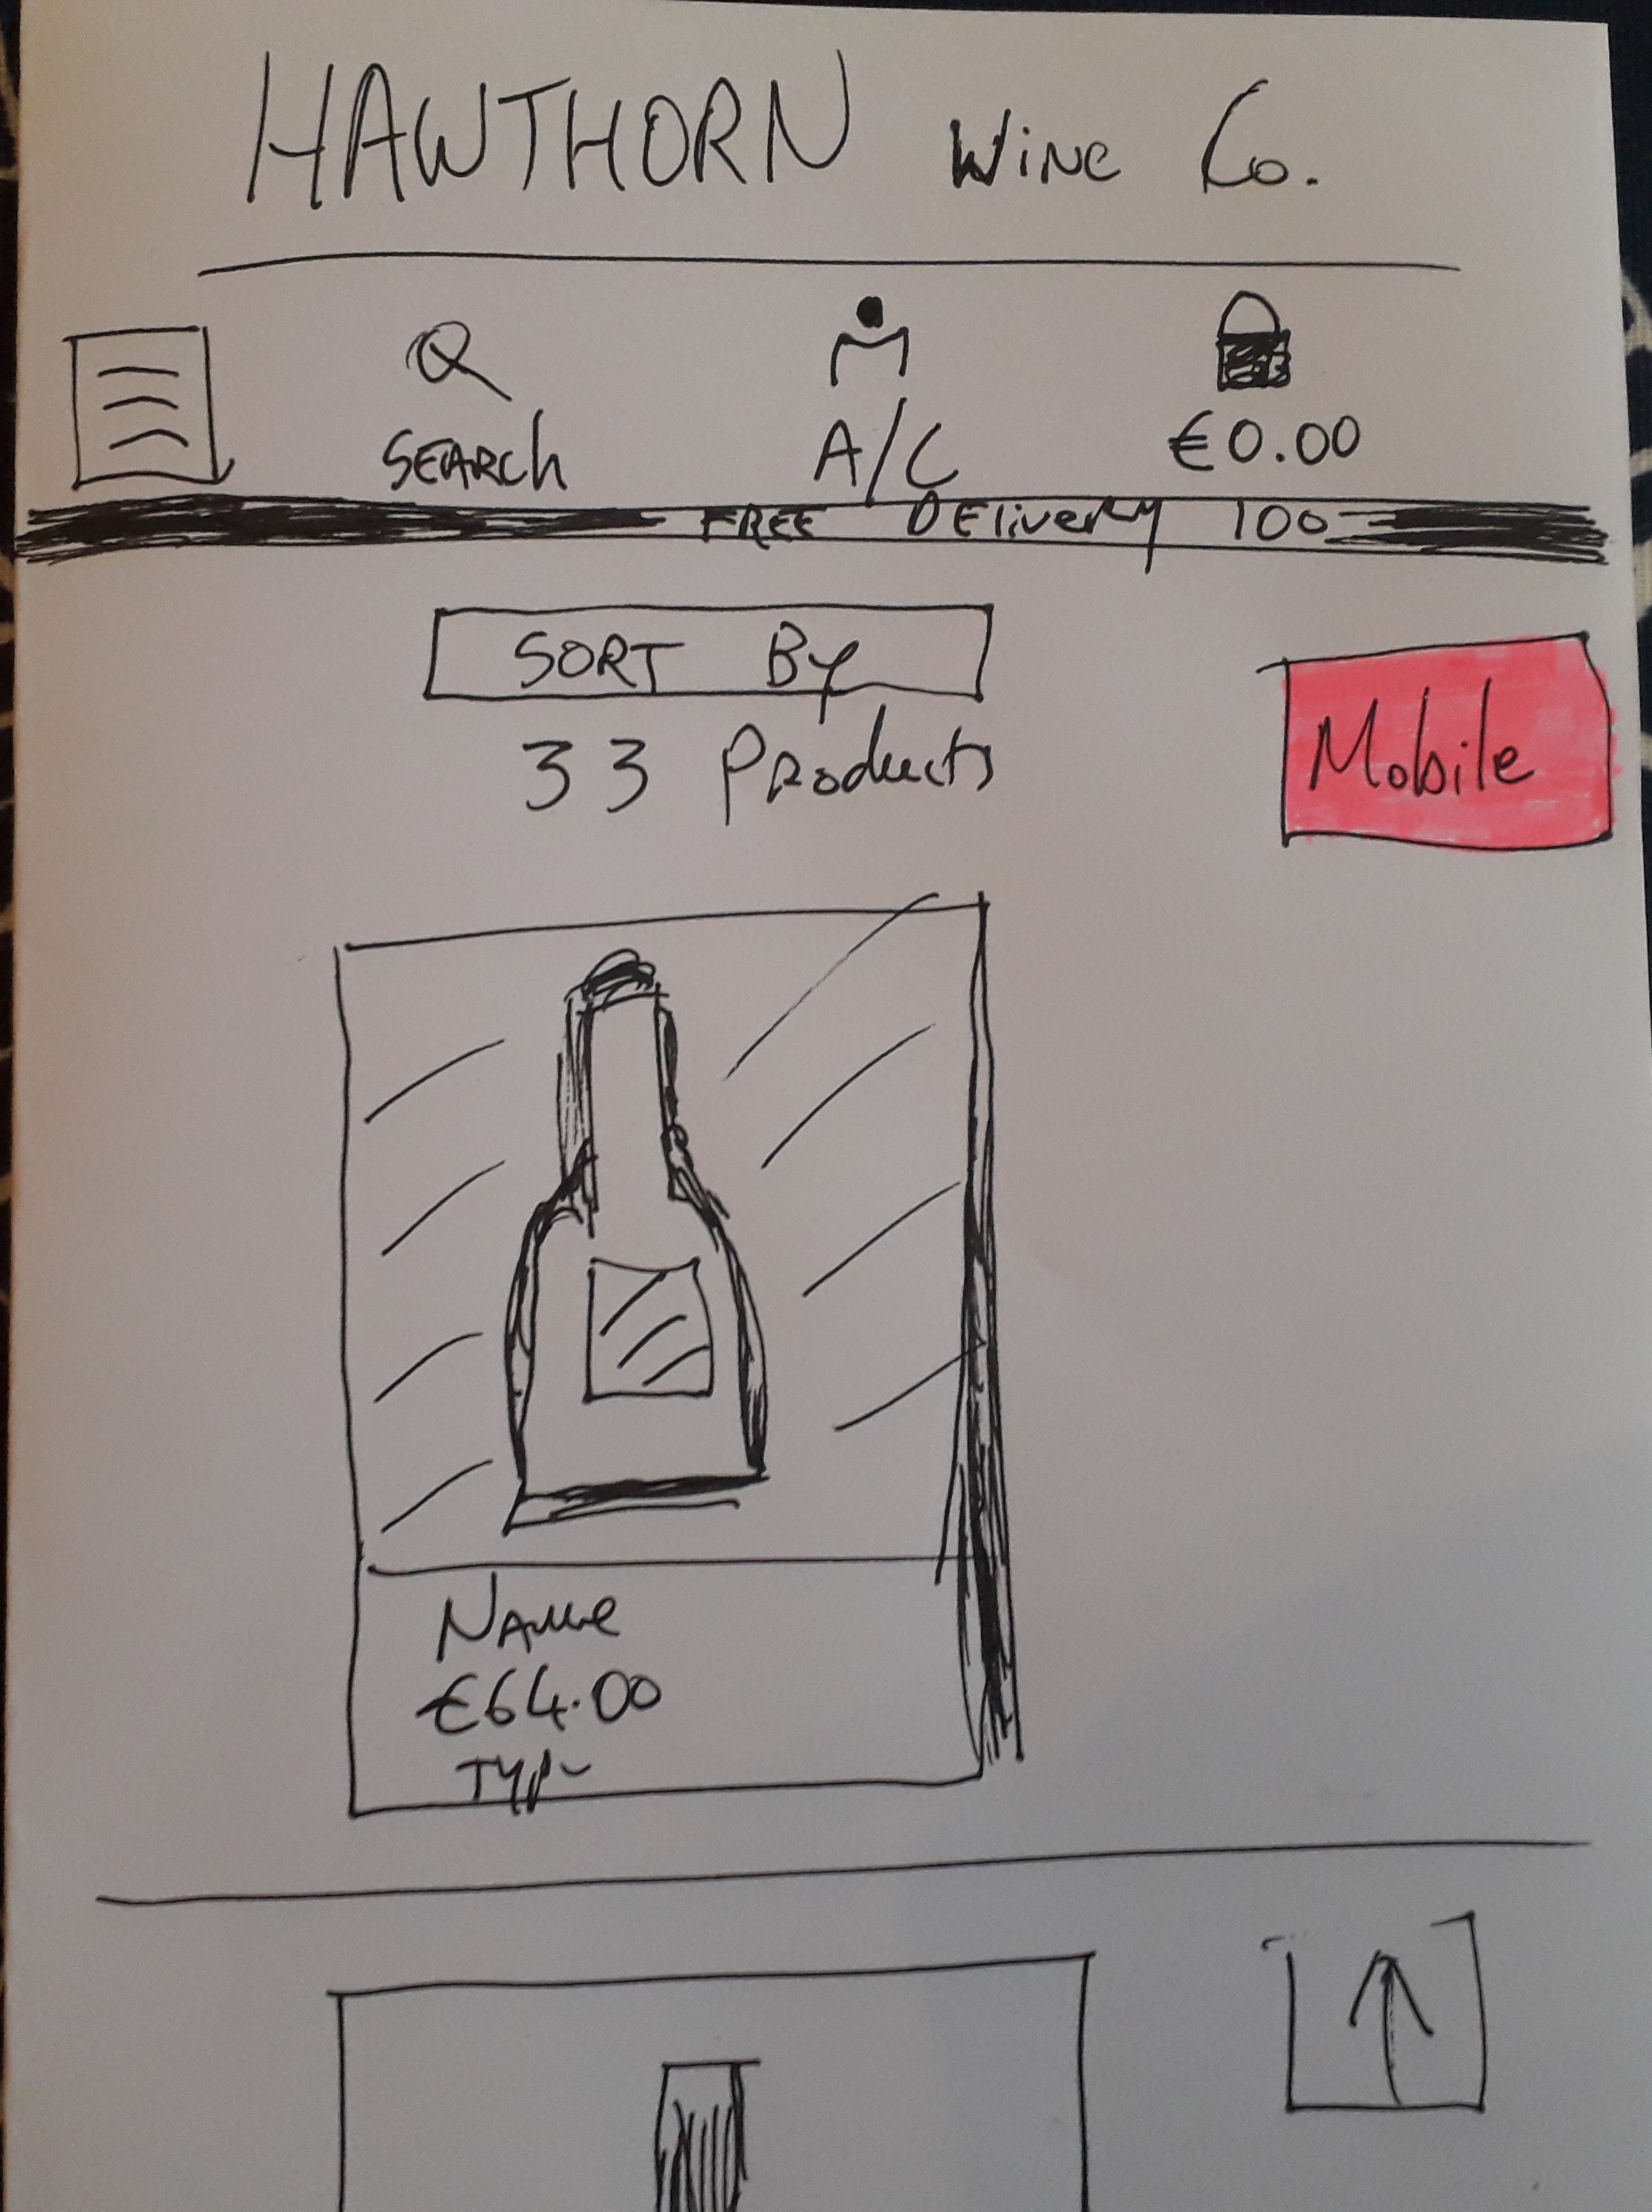 HAWTHORN Wine Co.
SEARCH
A/C
€0.00
FREE Delivery 100
SORT By
33 Products
Mobile
Name
€64.00